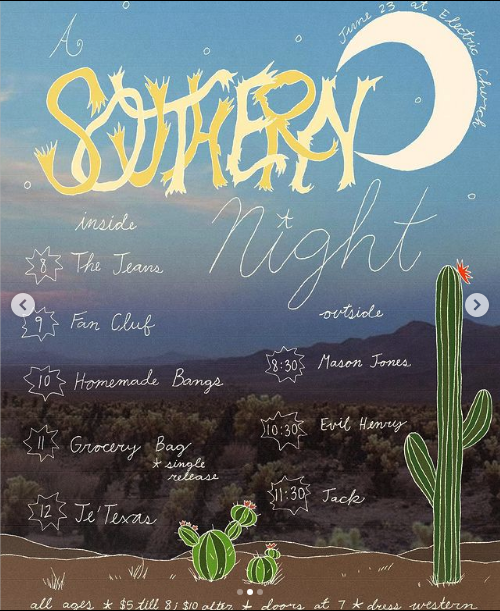 A
June 23 at Electric Church
SOUTHERN
Night
inside
8 The Jeans
9 Fan Cluf
10 Homemade Bangs
11 Grocery Bag
* single
release
12 Te'Texas
outside
8:30 Mason Jones
10:30 Evil Henry
11:30 Jack
all ages * $5 till 8; $10 after * doors at 7 * dress western